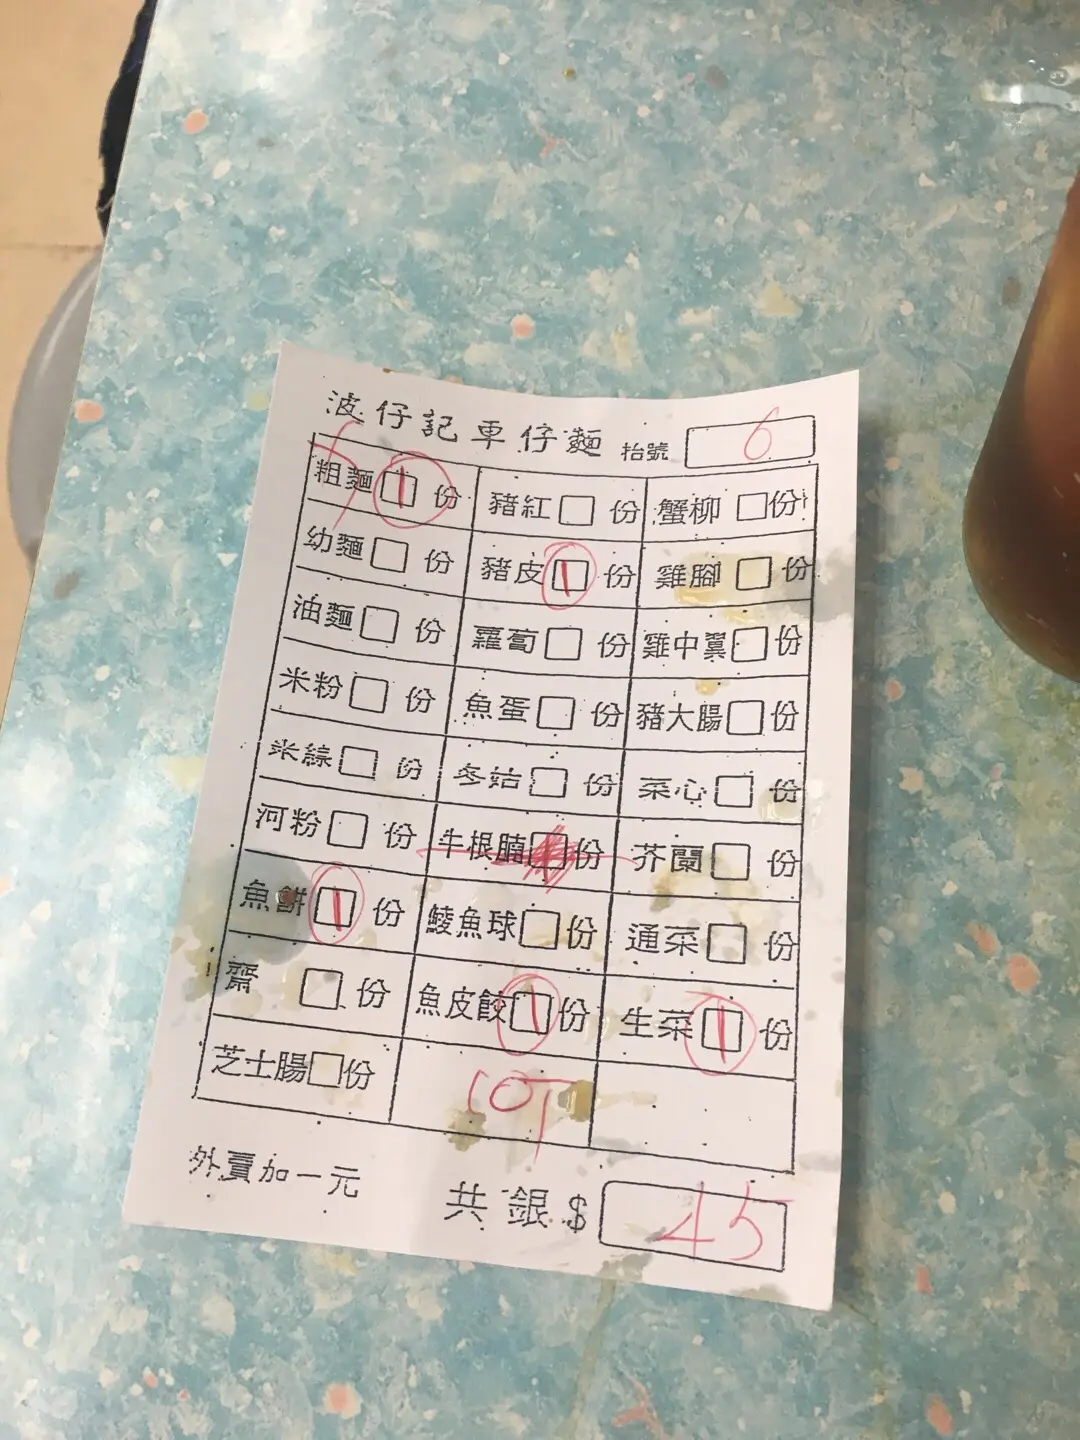 波仔記車仔麵 枱號 6
粗麵 1 份 豬紅 份 蟹柳 份
幼麵 份 豬皮 1 份 雞腳 份
油麵 份 蘿蔔 份 雞中翼 份
米粉 份 魚蛋 份 豬大腸 份
米線 份 冬姑 份 菜心 份
河粉 份 牛根腩 份 芥蘭 份
魚餅 1 份 鯪魚球 份 通菜 份
齋 份 魚皮餃 1 份 生菜 1 份
芝士腸 份 COT
外賣加一元 共銀$ 45